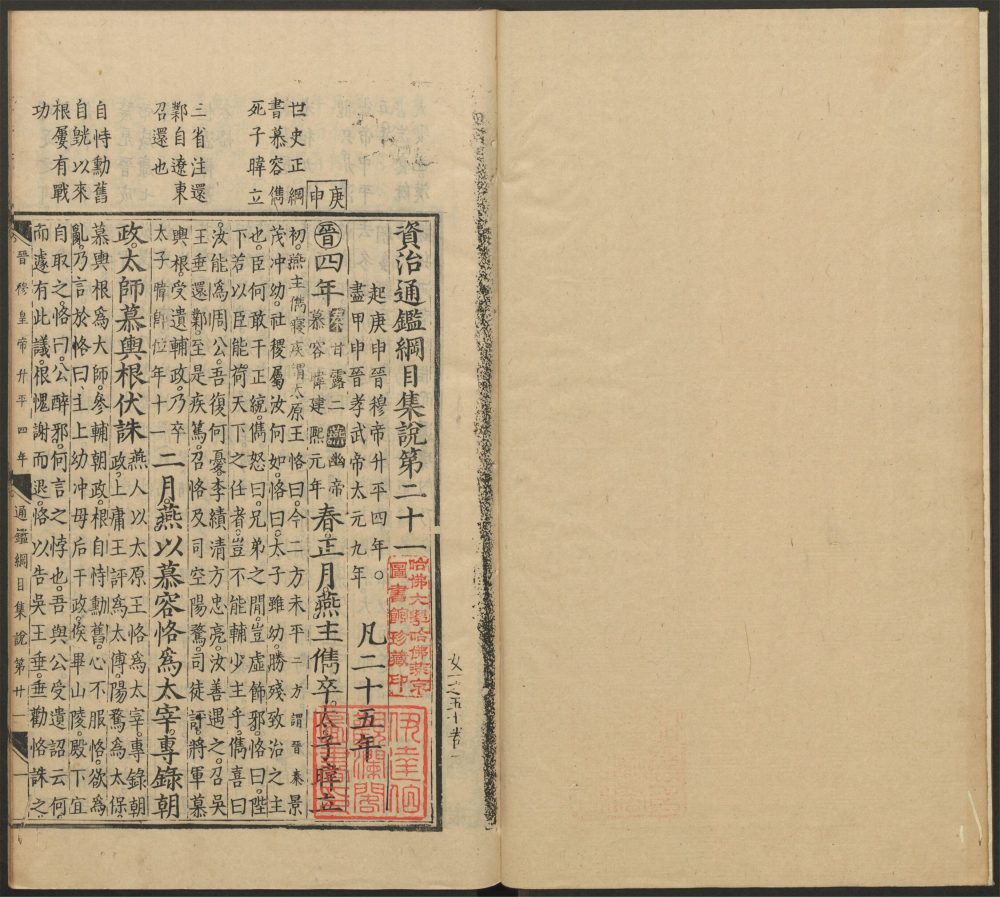 資治通鑑綱目集說第二十一
起庚申晉穆帝升平四年。
盡甲申晉孝武帝太元九年
凡二十五年
庚申
晉四年秦甘露二燕幽帝
慕容暐建熙元年
春。正月。燕主儁卒。太子暐立
初。燕主儁寢疾。謂太原王恪曰。今二方未平二方謂晉秦景
茂沖幼。社稷屬汝何如。恪曰。太子雖幼。勝殘致治之主
也。臣何敢干正統。儁怒曰。兄弟之閒。豈虛飾邪。恪曰。陛
下若以臣能荷天下之任者。豈不能輔少主乎。儁喜曰
汝能為周公。吾復何憂。李績清方忠亮。汝善遇之。召吳
王垂還鄴。至是疾篤。召恪及司空陽騖。司徒評。將軍慕
輿根。受遺輔政。乃卒
太子暐卽位。年十一
二月。燕以慕容恪為太宰。專錄朝
政。太師慕輿根伏誅
燕人以太原王恪為太宰。專錄朝
政。上庸王評為太傅。陽騖為太保。
慕輿根為大師。參輔朝政。根自恃勳舊。心不服恪。欲為
亂。乃言於恪曰。主上幼沖。母后干政。俟畢山陵。殿下宜
自取之。恪曰。公醉邪。何言之悖也。吾與公受遺詔云何
而遽有此議。根愧謝而退。恪以告吳王垂。垂勸恪誅之
世史正綱
書慕容儁
死子暐立
三省注還
鄴自遼東
召還也
自恃勳舊
自皝以來
根屢有戰
功
晉穆皇帝升平四年
通鑑綱目集說第廿一
一
哈佛大學哈佛燕京
圖書館珍藏印